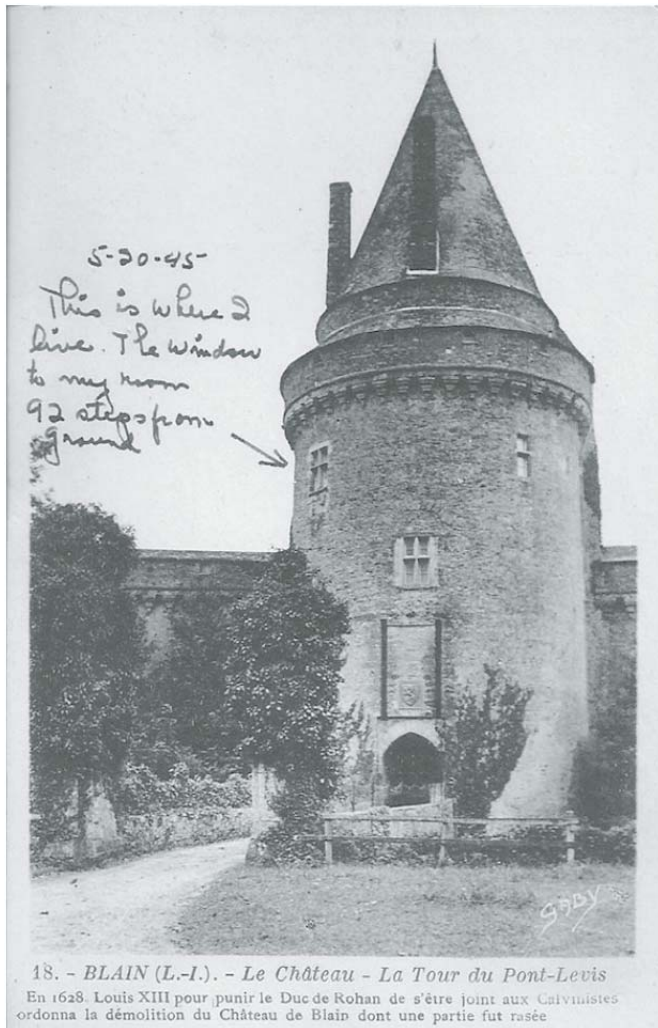 5-20-45
This is where I
live. The window
to my room
92 steps from
ground
GABY
18. - BLAIN (L.-I.). - Le Château - La Tour du Pont-Levis
En 1628. Louis XIII pour punir le Duc de Rohan de s'être joint aux Calvinistes
ordonna la démolition du Château de Blain dont une partie fut rasée